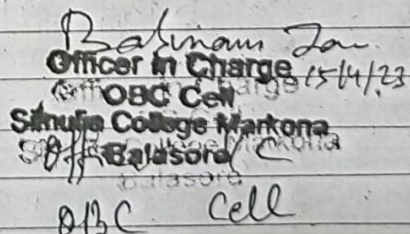 15/4/23
Officer in Charge
OBC Cell
Simulia College Markona
Balasore
OBC Cell